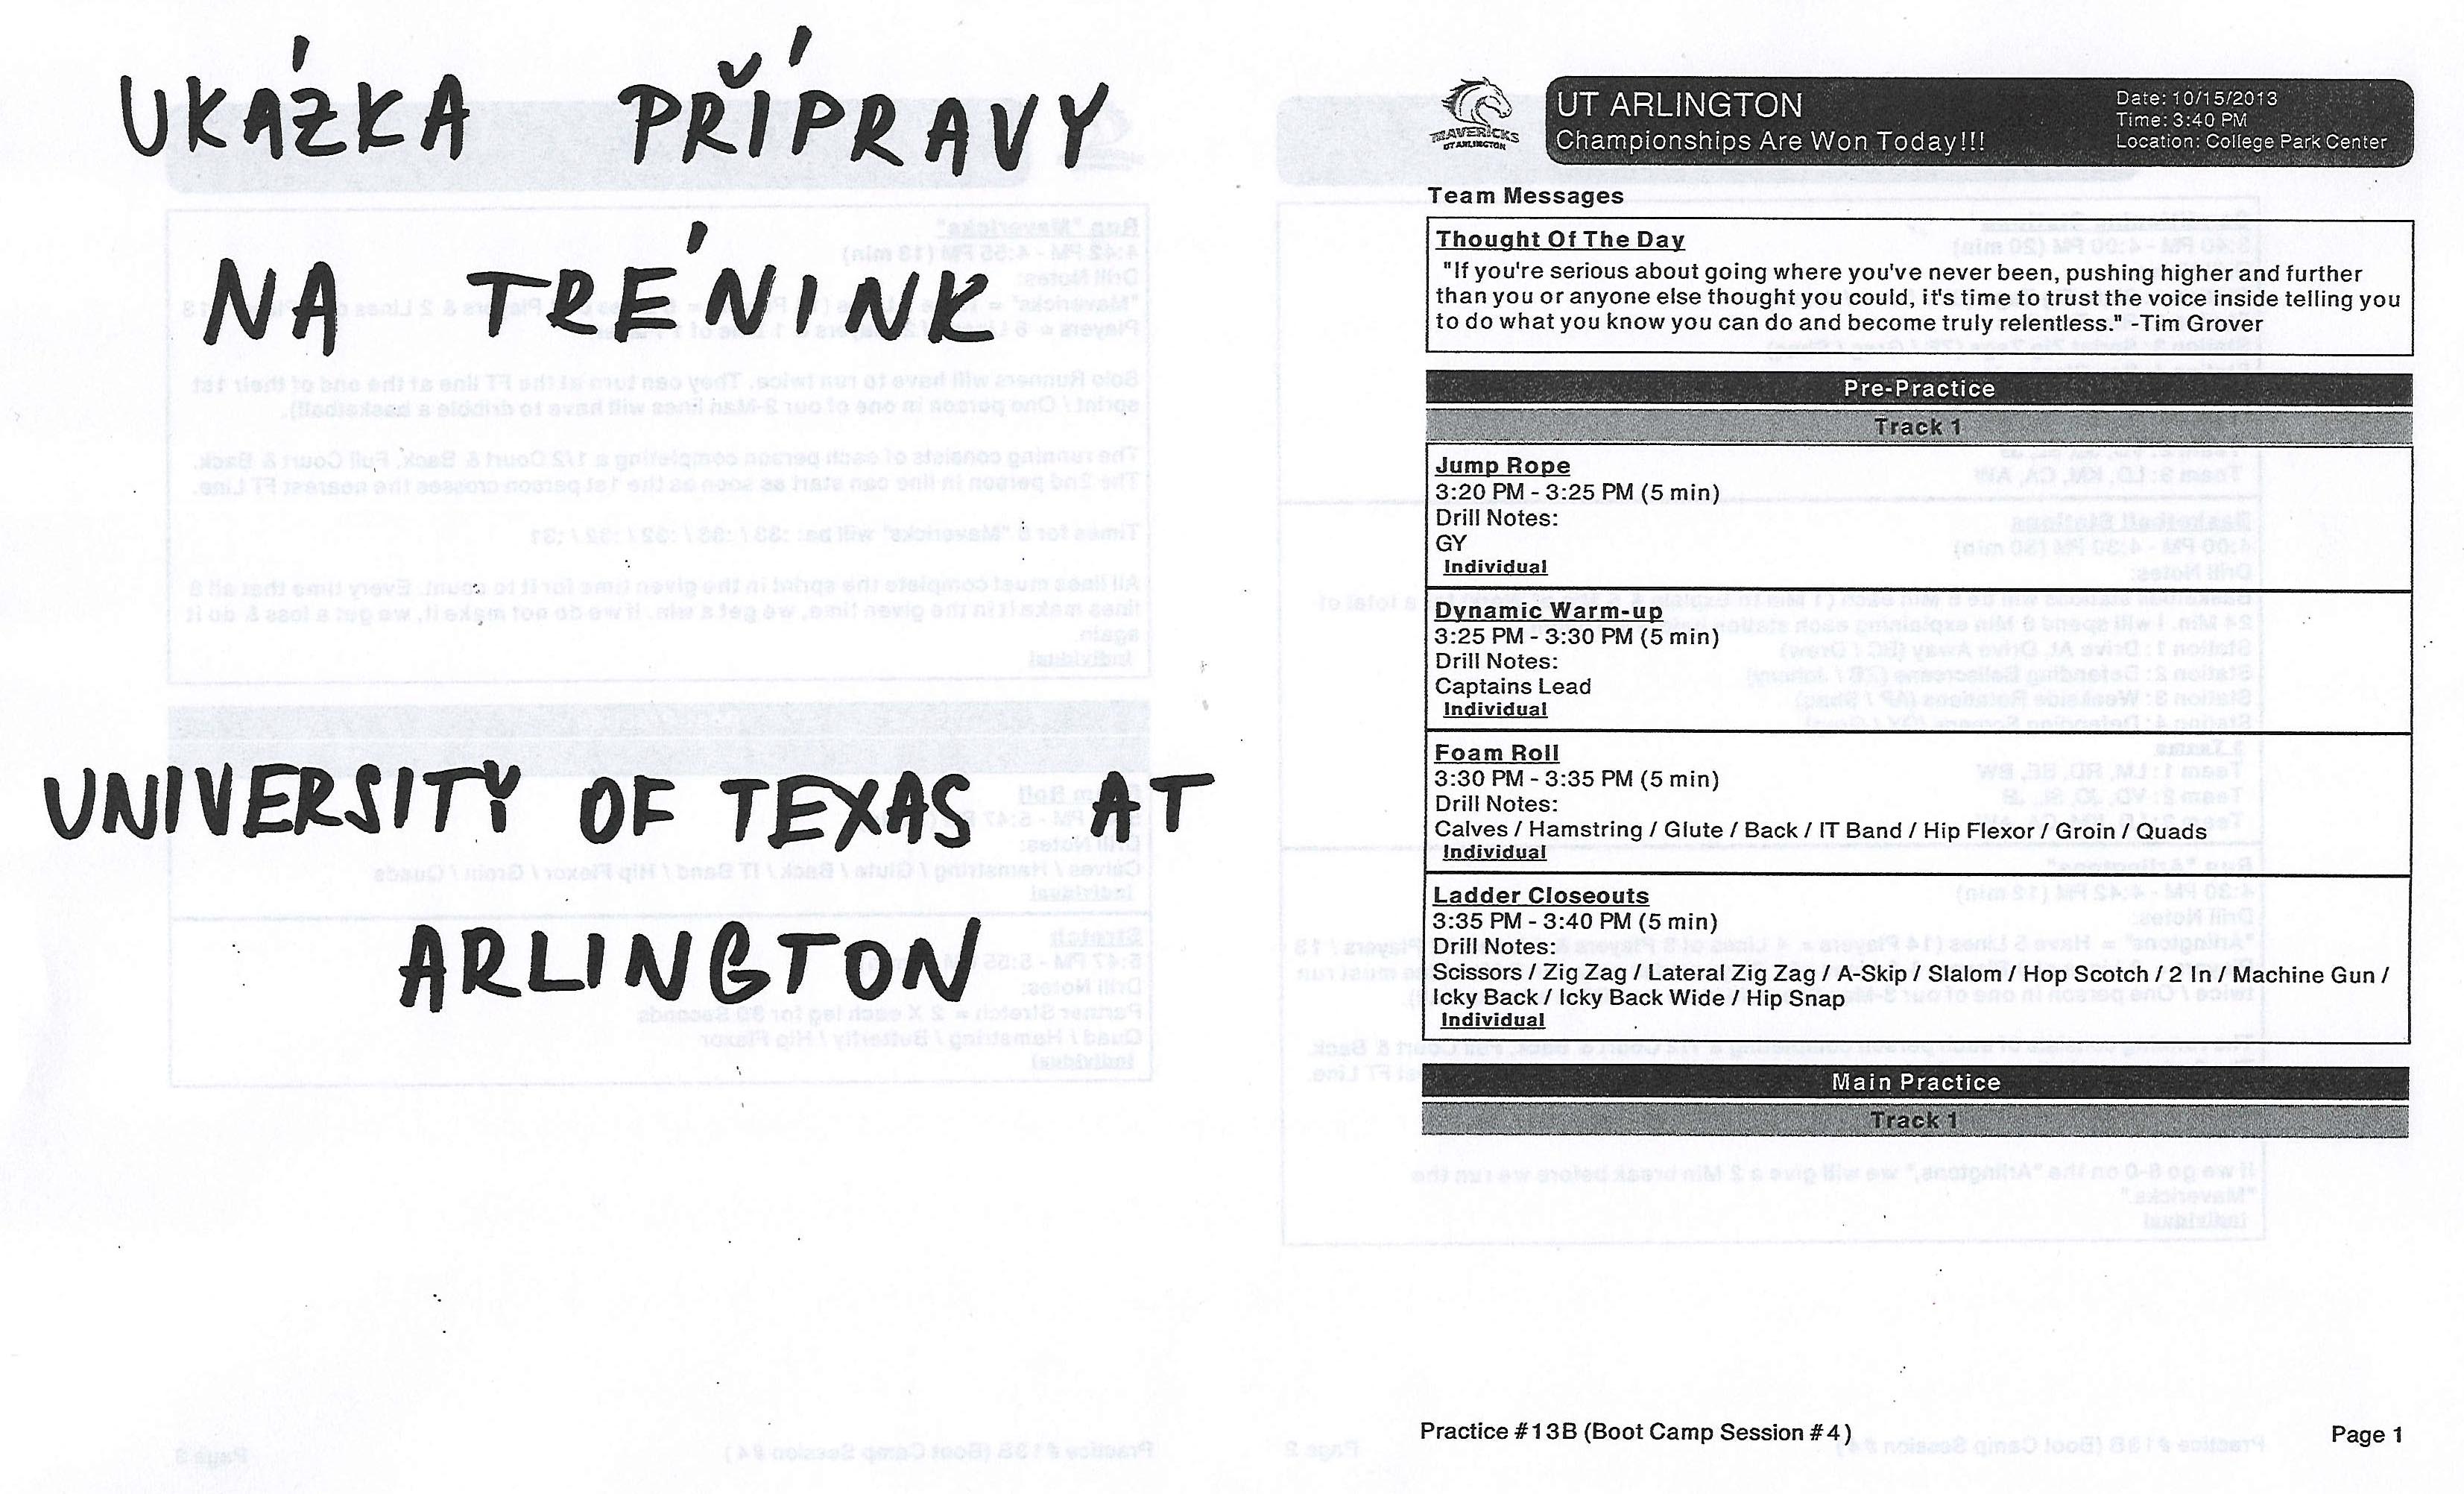 UKÁZKA PŘÍPRAVY
NA TRÉNINK
UNIVERSITY OF TEXAS AT
ARLINGTON
MAVERICKS
UT ARLINGTON
UT ARLINGTON
Championships Are Won Today!!!
Date: 10/15/2013
Time: 3:40 PM
Location: College Park Center
Team Messages
Thought Of The Day
"If you're serious about going where you've never been, pushing higher and further
than you or anyone else thought you could, it's time to trust the voice inside telling you
to do what you know you can do and become truly relentless." -Tim Grover
Pre-Practice
Track 1
Jump Rope
3:20 PM - 3:25 PM (5 min)
Drill Notes:
GY
Individual
Dynamic Warm-up
3:25 PM - 3:30 PM (5 min)
Drill Notes:
Captains Lead
Individual
Foam Roll
3:30 PM - 3:35 PM (5 min)
Drill Notes:
Calves / Hamstring / Glute / Back / IT Band / Hip Flexor / Groin / Quads
Individual
Ladder Closeouts
3:35 PM - 3:40 PM (5 min)
Drill Notes:
Scissors / Zig Zag / Lateral Zig Zag / A-Skip / Slalom / Hop Scotch / 2 In / Machine Gun /
Icky Back / Icky Back Wide / Hip Snap
Individual
Main Practice
Track 1
Practice #13B (Boot Camp Session #4)
Page 1